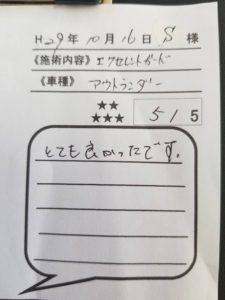 H29年10月16日 S 様
《施術内容》エクセレントガード
《車種》アウトランダー
★★
★★★
5/5
とても良かったです。